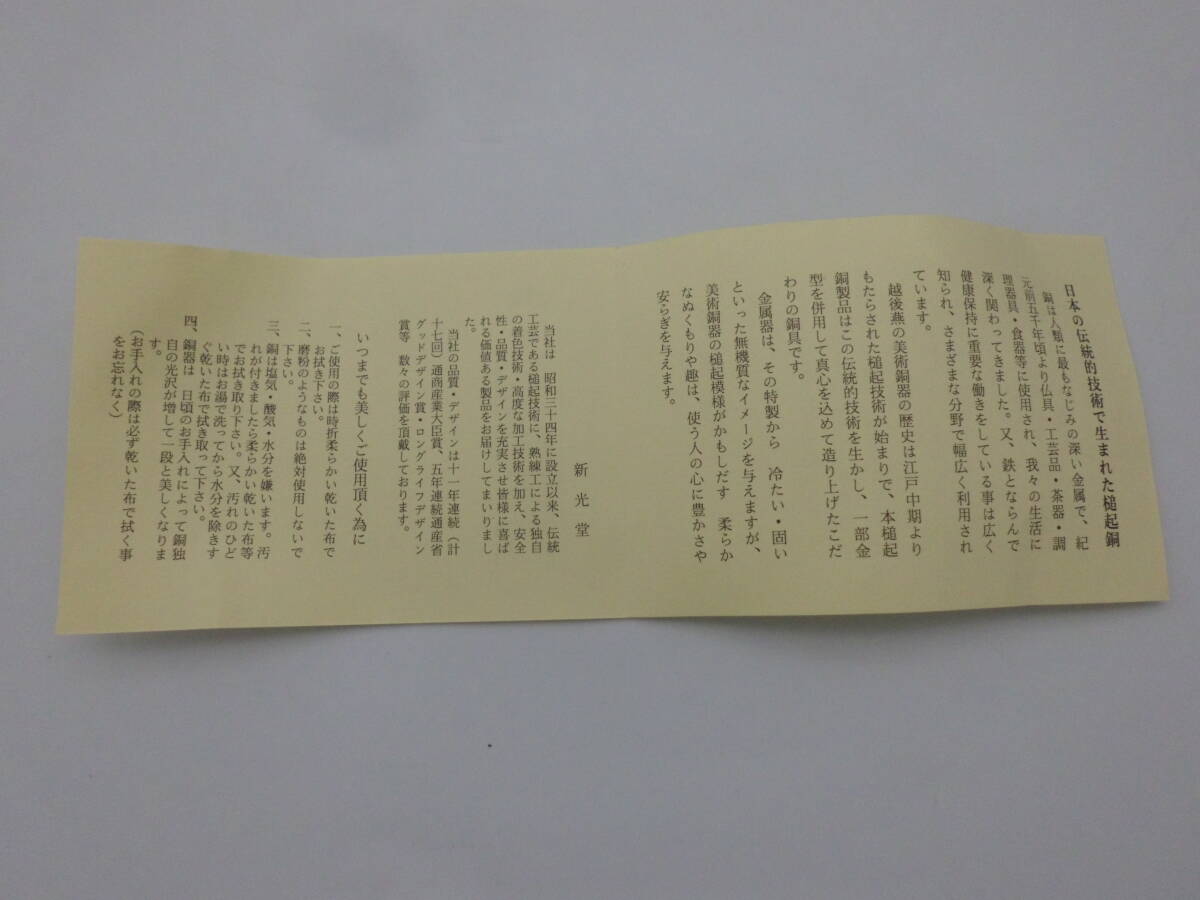 日本の伝統的技術で生まれた槌起銅
銅は人類に最もなじみの深い金属で、紀
元前五千年頃より仏具・工芸品・茶器・調
理器具・食器等に使用され、我々の生活に
深く関わってきました。又、鉄とならんで
健康保持に重要な働きをしている事は広く
知られ、さまざまな分野で幅広く利用され
ています。
越後燕の美術銅器の歴史は江戸中期より
もたらされた槌起技術が始まりで、本槌起
銅製品はこの伝統的技術を生かし、一部金
型を併用して真心を込めて造り上げたこだ
わりの銅具です。
金属器は、その特製から 冷たい・固い
といった無機質なイメージを与えますが、
美術銅器の槌起模様がかもしだす 柔らか
なぬくもりや趣は、使う人の心に豊かさや
安らぎを与えます。
新光堂
当社は 昭和三十四年に設立以来、伝統
工芸である槌起技術に、熟練工による独自
の着色技術・高度な加工技術を加え、安全
性・品質・デザインを充実させ皆様に喜ば
れる価値ある製品をお届けしてまいりまし
た。
当社の品質・デザインは十一年連続(計
十七回)通商産業大臣賞、五年連続通産省
グッドデザイン賞・ロングライフデザイン
賞等 数々の評価を頂戴しております。
いつまでも美しくご使用頂く為に
一、ご使用の際は時折柔らかい乾いた布で
お拭き下さい。
二、磨粉のようなものは絶対使用しないで
下さい。
三、銅は塩気・酸気・水分を嫌います。汚
れが付きましたら柔らかい乾いた布等
でお拭き取り下さい。又、汚れのひど
い時はお湯で洗ってから水分を除きす
ぐ乾いた布で拭き取って下さい。
四、銅器は 日頃のお手入れによって銅独
自の光沢が増して一段と美しくなりま
す。
(お手入れの際は必ず乾いた布で拭く事
をお忘れなく)